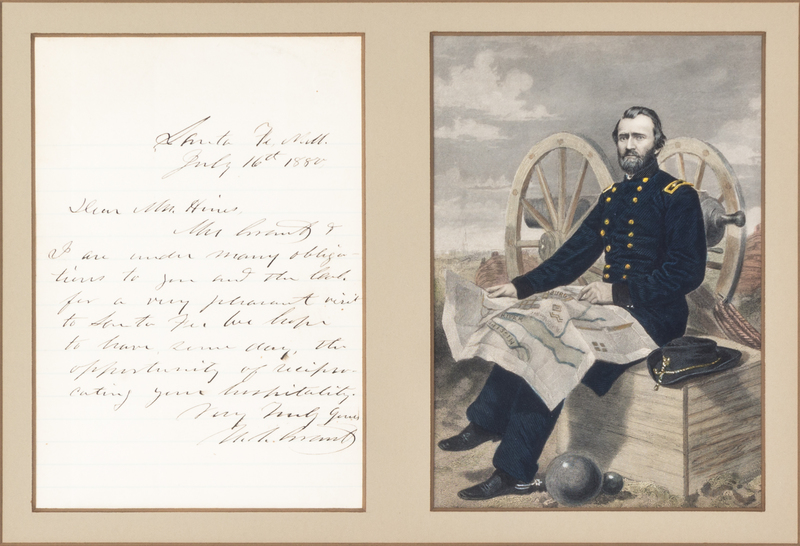 Santa Fe, N.M.
July 16th 1880
Dear Mrs. Hines,
Mrs Grant &
I are under many obliga-
tions to you and the
for a very pleasant visit
to Santa Fe. We hope
to have, some day, the
opportunity of recipro-
cating your hospitality.
Very Truly Yours
U. S. Grant